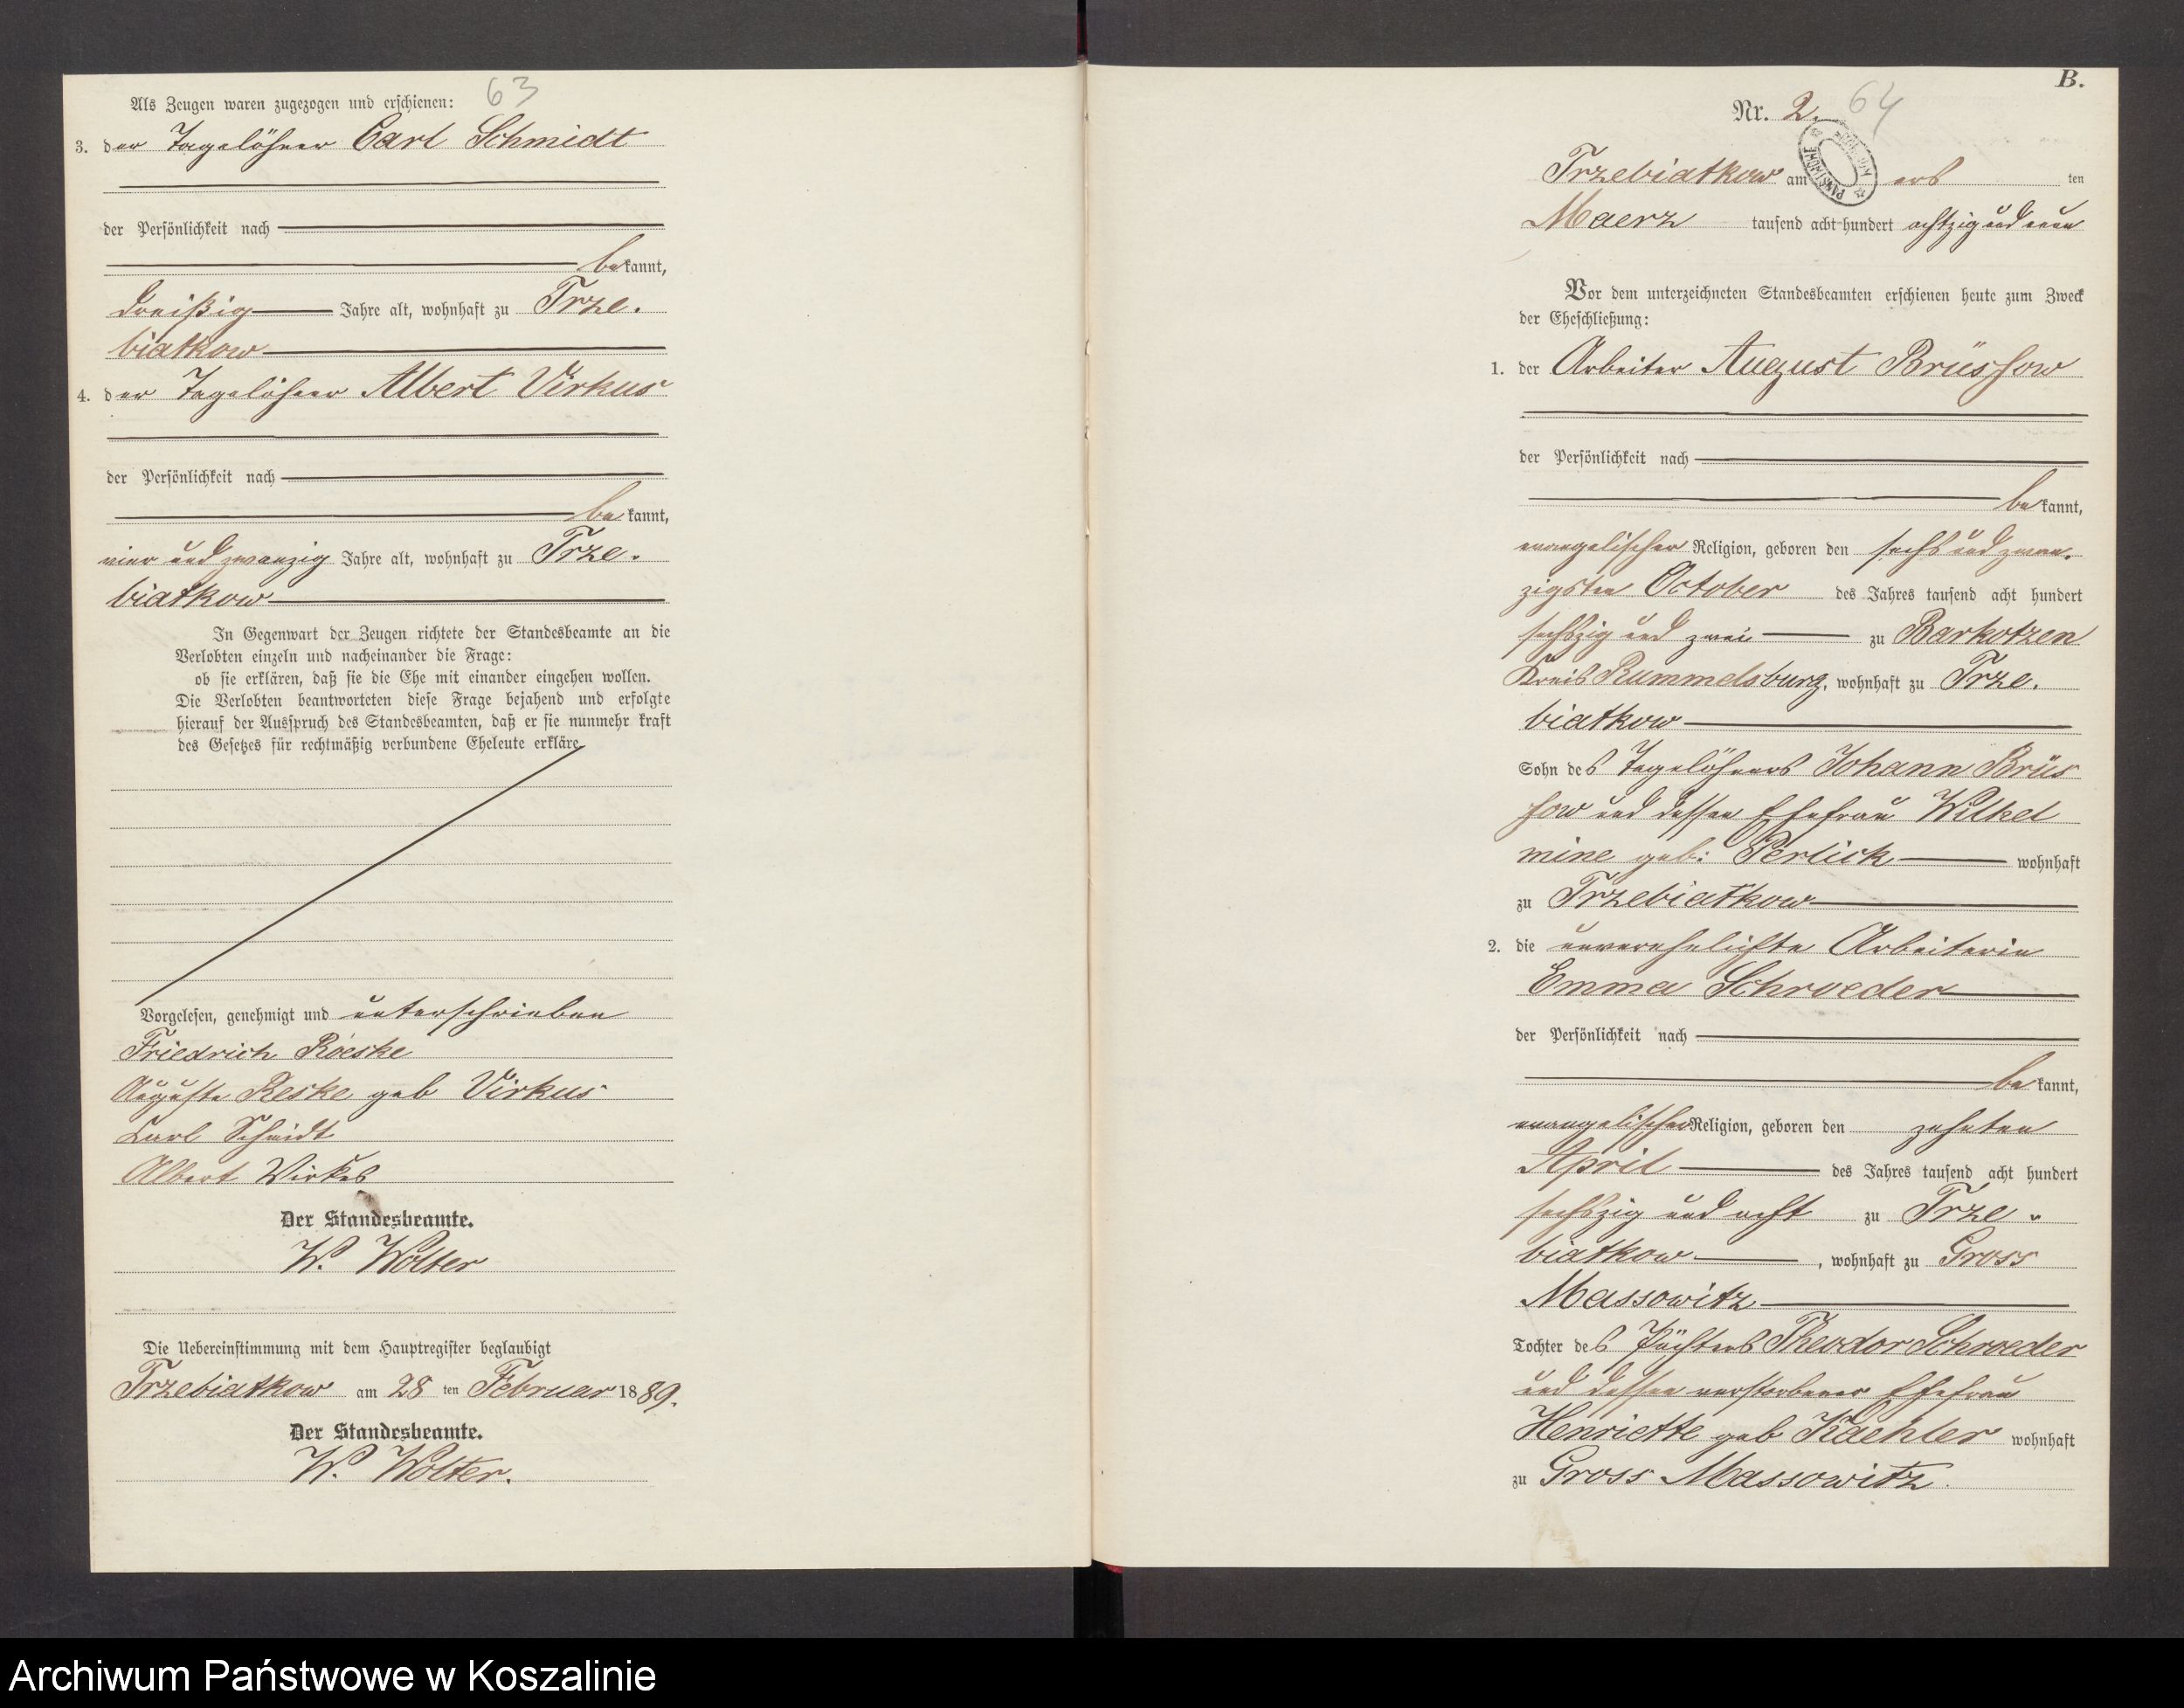 63
Als Zeugen waren zugezogen und erschienen:
3. der Tagelöhner Carl Schmidt
der Persönlichkeit nach
bekannt,
dreißig Jahre alt, wohnhaft zu Trze.
biatkow
4. der Tagelöhner Albert Virkus
der Persönlichkeit nach
be kannt,
vier und zwanzig Jahre alt, wohnhaft zu Trze.
biatkow
In Gegenwart der Zeugen richtete der Standesbeamte an die
Verlobten einzeln und nacheinander die Frage:
ob sie erklären, daß sie die Ehe mit einander eingehen wollen.
Die Verlobten beantworteten diese Frage bejahend und erfolgte
hierauf der Ausspruch des Standesbeamten, daß er sie nunmehr kraft
des Gesetzes für rechtmäßig verbundene Eheleute erkläre
Vorgelesen, genehmigt und unterschrieben
Friedrich Röeske
Auguste Reske geb Virkus
Carl Schmidt
Albert Wirkus
Der Standesbeamte.
W. Wolter
Die Uebereinstimmung mit dem Hauptregister beglaubigt
Trzebiatkow am 28 ten Februar 1889.
Der Standesbeamte.
W. Wolter.
B.
Nr. 2. 64
Trzebiatkow am ers ten
Maerz tausend acht hundert achtzig und neun
Vor dem unterzeichneten Standesbeamten erschienen heute zum Zweck
der Eheschließung:
1. der Arbeiter August Brüssow
der Persönlichkeit nach
bekannt,
evangelischer Religion, geboren den sechs und zwan.
zigsten October des Jahres tausend acht hundert
sechszig und zwei zu Barkotzen
Kreis Rummelsburg, wohnhaft zu Trze.
biatkow
Sohn des Tagelöhners Johann Brüs
sow und dessen Ehefrau Wilhel
mine geb: Perlick wohnhaft
zu Trzebiatkow
2. die unverehelichte Arbeiterin
Emma Schroeder
der Persönlichkeit nach
be kannt,
evangelischer Religion, geboren den zehnten
April des Jahres tausend acht hundert
sechszig und acht zu Trze.
biatkow, wohnhaft zu Gross
Massowitz
Tochter des Pächters Theodor Schroeder
und dessen verstorbener Ehefrau
Henriette geb Kaehler wohnhaft
zu Gross Massowitz.
Archiwum Państwowe w Koszalinie